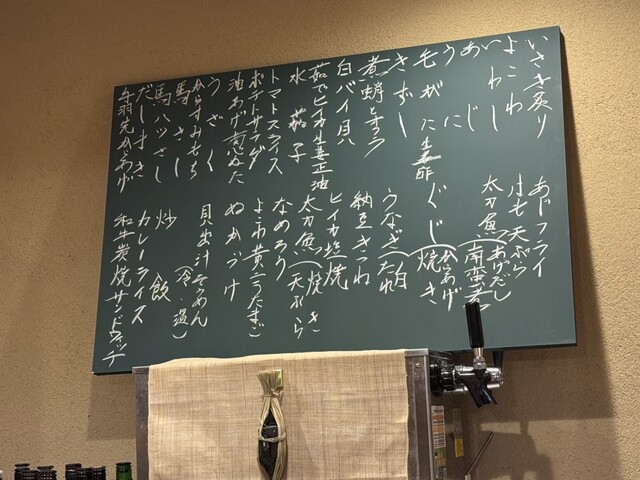 いさき炙り
よこわ
いわし
あじ
うに
毛がに 生姜酢
きずし
煮蛸とオクラ
白バイ貝
茹でヒイカ生姜正油
水茄子
トマトスライス
ポテトサラダ
油あげ
うざく
からすみもち
馬さし
馬ハツさし
だしまき
手羽先からあげ
あじフライ
はも天ぷら
太刀魚(あげだし 南蛮煮)
ぐじ(からあげ 焼き)
うなぎ(白 たれ)
納豆きつね
ヒイカ塩焼
太刀魚(焼き 天ぷら)
なめろう
よこわ黄身うたまご
ぬかづけ
貝出汁そうめん(冷・温)
炒飯
カレーライス
和牛炭焼サンドウィッチ